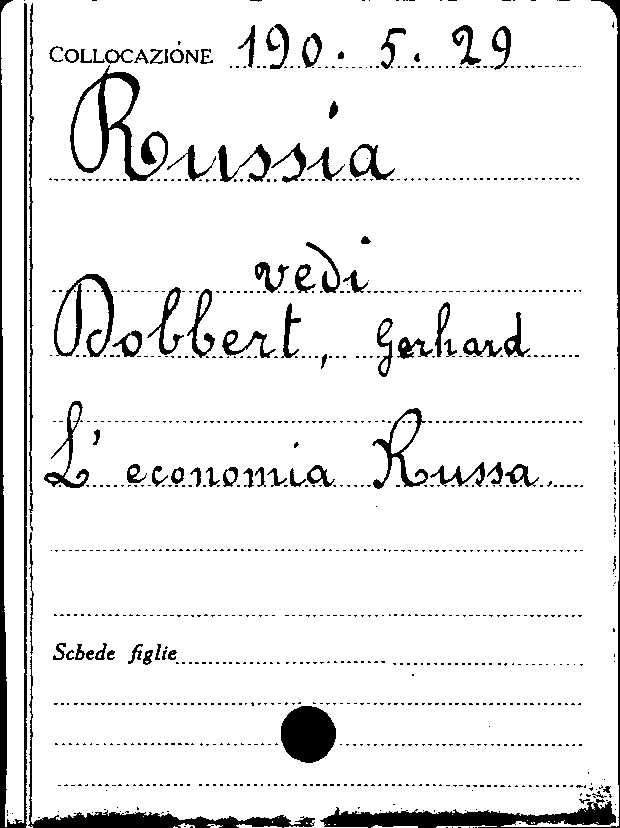 COLLOCAZIONE 190. 5. 29
Russia
vedi
Dobbert, Gerhard
L' economia Russa.
Schede figlie